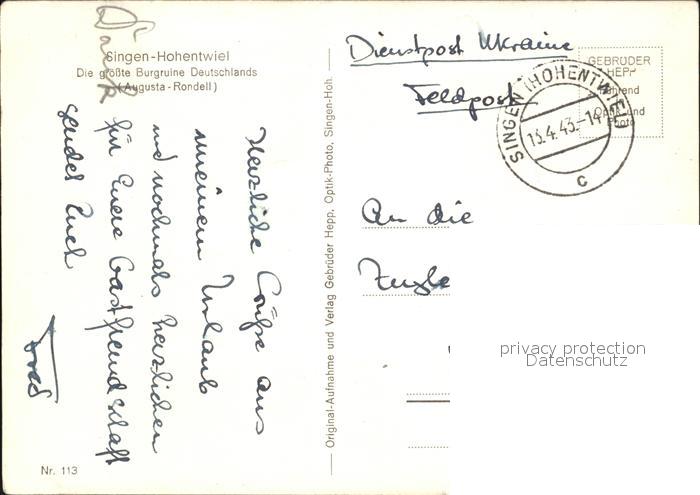 Singen-Hohentwiel
Die größte Burgruine Deutschlands
(Augusta-Rondell)
Herzliche Grüße aus
meinem Urlaub
und nochmals herzlichen
Dank
für Euere Gastfreundschaft
sendet Euch
Nr. 113
Original-Aufnahme und Verlag Gebrüder Hepp, Optik-Photo, Singen-Hoh.
Dienstpost Ukraine
Feldpost
GEBRÜDER
HEPP
führend
Optik und
Photo
SINGEN (HOHENTWIEL)
13.4.43.-14
c
An die
privacy protection
Datenschutz